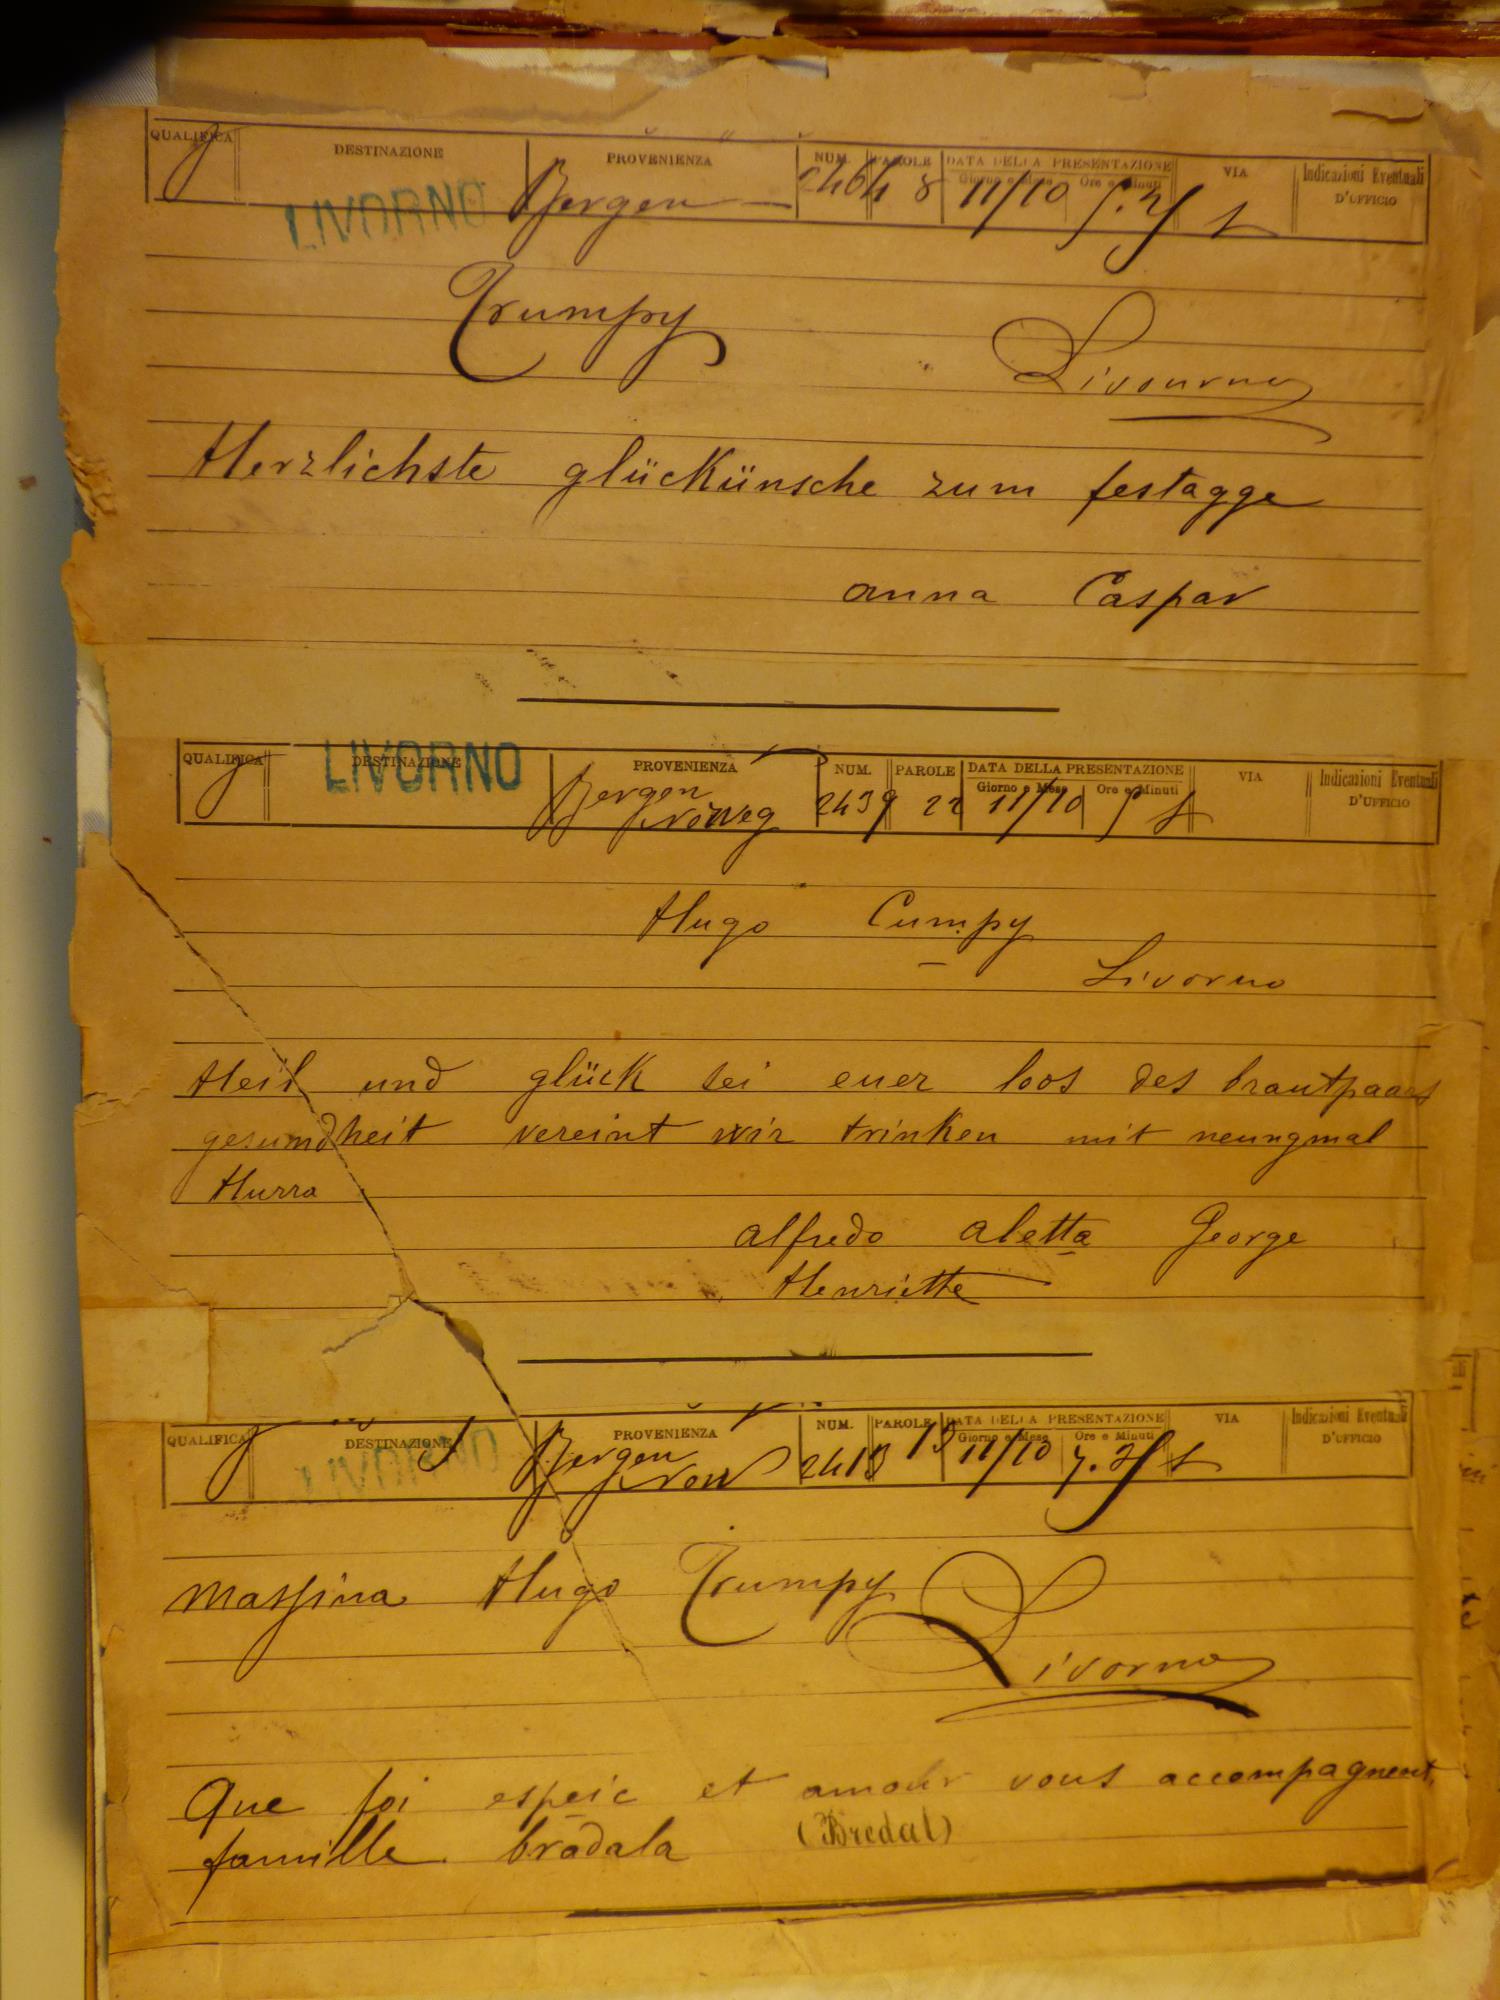 QUALIFICA DESTINAZIONE PROVENIENZA NUM. PAROLE DATA DELLA PRESENTAZIONE VIA Indicazioni Eventuali
Giorno e Mese Ore e Minuti D'UFFICIO
LIVORNO Bergen 8 11/10
Trumpy Livourno
Herzlichste glückünsche zum festagge
anna Caspar
QUALIFICA DESTINAZIONE PROVENIENZA NUM. PAROLE DATA DELLA PRESENTAZIONE VIA Indicazioni Eventuali
Giorno e Mese Ore e Minuti D'UFFICIO
LIVORNO Bergen 2439 22 11/10
Norweg
Hugo Cumpy
Livorno
Heil und glück sei euer loos des brautpaars
gesundheit vereint wir trinken mit neungmal
Hurra
alfredo aletta George
Henriette
QUALIFICA DESTINAZIONE PROVENIENZA NUM. PAROLE DATA DELLA PRESENTAZIONE VIA Indicazioni Eventuali
Giorno e Mese Ore e Minuti D'UFFICIO
LIVORNO Bergen 2413 13 11/10
Hugo Trumpy
Livorno
Que foi espeic et amour vous accompagnent
famille bradala (Bredal)